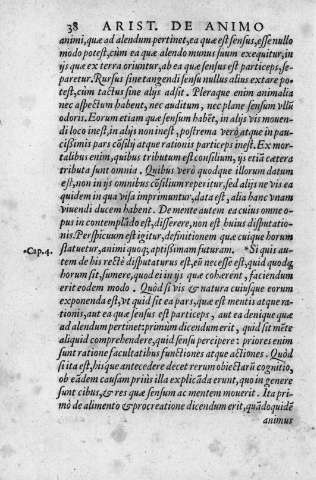 38 ARIST. DE ANIMO
animi, quæ ad alendum pertinet, ea quæ est sensus, esse nullo
modo potest, cùm ea quæ alendo munus suum exequitur, in
ijs quæ ex terra oriuntur, ab ea quæ sensus est particeps, se-
paretur. Rursus sine tangendi sensu nullus alius extare po-
test, cùm tactus sine alijs adsit. Pleraque enim animalia
nec aspectum habent, nec auditum, nec plane sensum vllũ
odoris. Eorum etiam quæ sensum habẽt, in alijs vis mouen-
di loco inest, in alijs non inest, postrema verò atque in pau-
cissimis pars cõsilij atque rationis particeps inest. Ex mor-
talibus enim, quibus tributum est consilium, ijs etiã cætera
tributa sunt omnia. Quibus verò quodque illorum datum
est, non in ijs omnibus cõsilium reperitur, sed alijs ne vis ea
quidem in qua visa imprimuntur, data est, alia hanc vnam
viuendi ducem habent. De mente autem ea cuius omne o-
pus in contemplãdo est, disserere, non est huius disputatio-
nis. Perspicuum est igitur, definitionem quæ cuique horum
statuetur, animi quoq; aptissimam futuram. *Si quis au-
*Cap. 4.
tem de his rectè disputaturus est, eũ necesse est, quid quodq;
horum sit, sumere, quod ei in ijs quæ cohærent, faciendum
erit eodem modo. Quòd si vis & natura cuiusque eorum
exponenda est, vt quid sit ea pars, quæ est mentis atque ra-
tionis, aut ea quæ sensus est particeps, aut ea denique quæ
ad alendum pertinet: primùm dicendum erit, quid sit mẽte
aliquid comprehendere, quid sensu percipere: priores enim
sunt ratione facultatibus functiones atque actiones. Quòd
si ita est, hisque antecedere decet rerum obiectarũ cognitio,
ob eãdem causam priùs illa explicãda erunt, quo in genere
sunt cibus, & res quæ sensum ac mentem mouerit. Ita pri-
mò de alimento & procreatione dicendum erit, quãdoquidẽ
animus